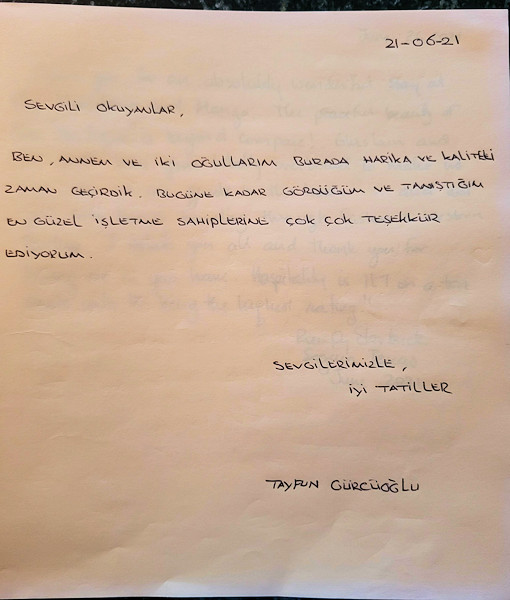 21-06-21
SEVGİLİ OKUYANLAR,
BEN, ANNEM VE İKİ OĞULLARIM BURADA HARİKA VE KALİTELİ
ZAMAN GEÇİRDİK. BUGÜNE KADAR GÖRDÜĞÜM VE TANIŞTIĞIM
EN GÜZEL İŞLETME SAHİPLERİNE ÇOK ÇOK TEŞEKKÜR
EDİYORUM.
SEVGİLERİMİZLE,
İYİ TATİLLER
TAYFUN GÜRCÜOĞLU